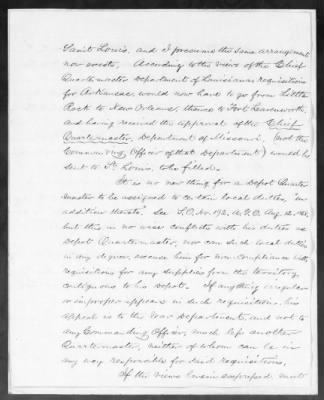 Saint Louis, and I presume the same arrangement
now exists. According to the views of the Chief
Quartermaster Department of Louisiana requisitions
for Arkansas would now have to go from Little
Rock to New Orleans, thence to Fort Leavenworth,
and having received the approval of the Chief
Quartermaster, Department of Missouri, (and the
Commanding Officer of that Department) would be
sent to St. Louis, to be filled.
It is no new thing for a Depot Quarter
master to be assigned to certain local duties, "in
addition thereto." See S.O. No. 192, A.G.O. Aug. 12,
but this in no wise conflicts with his duties as
Depot Quartermaster, nor can such local duties
in any degree, excuse him for non compliance with
requisitions for any supplies from the territory
contiguous to his Depot. If anything irregular
or improper appears in such requisitions, his
appeal is to the War Department, and not to
any Commanding Officer, much less another
Quartermaster, neither of whom can be in
any way responsible for said requisitions.
If the views herein expressed meet